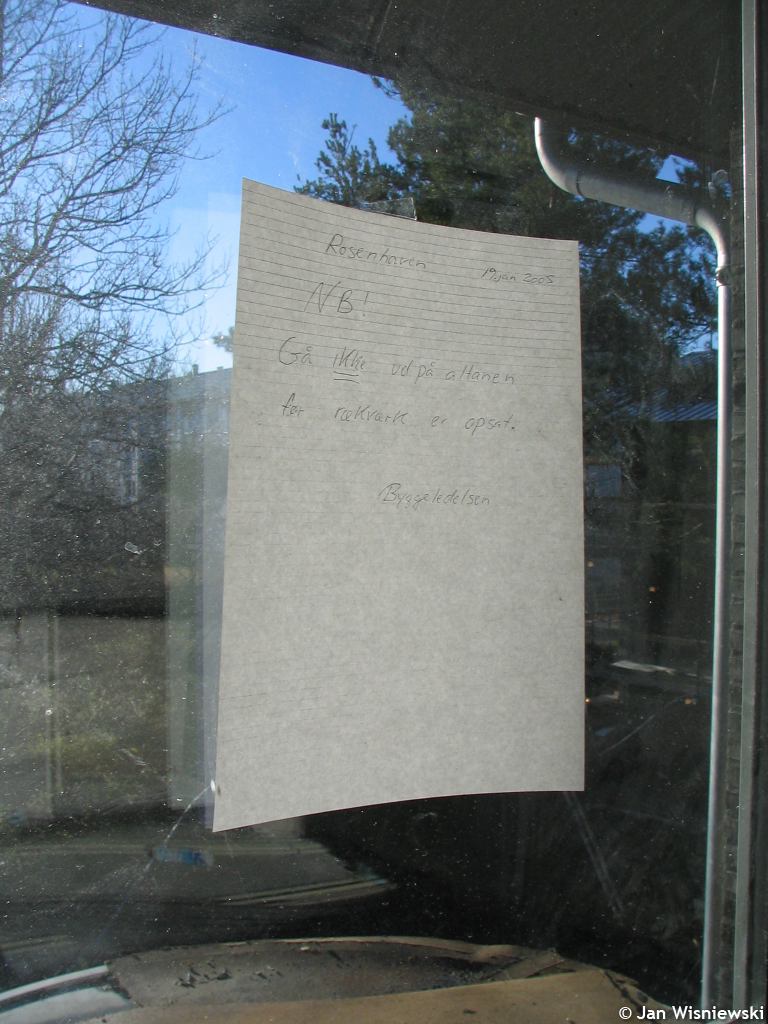 Rosenhaven 19. jan 2005
NB!
Gå ikke ud på altanen
før rækværk er opsat.
Byggeledelsen
© Jan Wisniewski